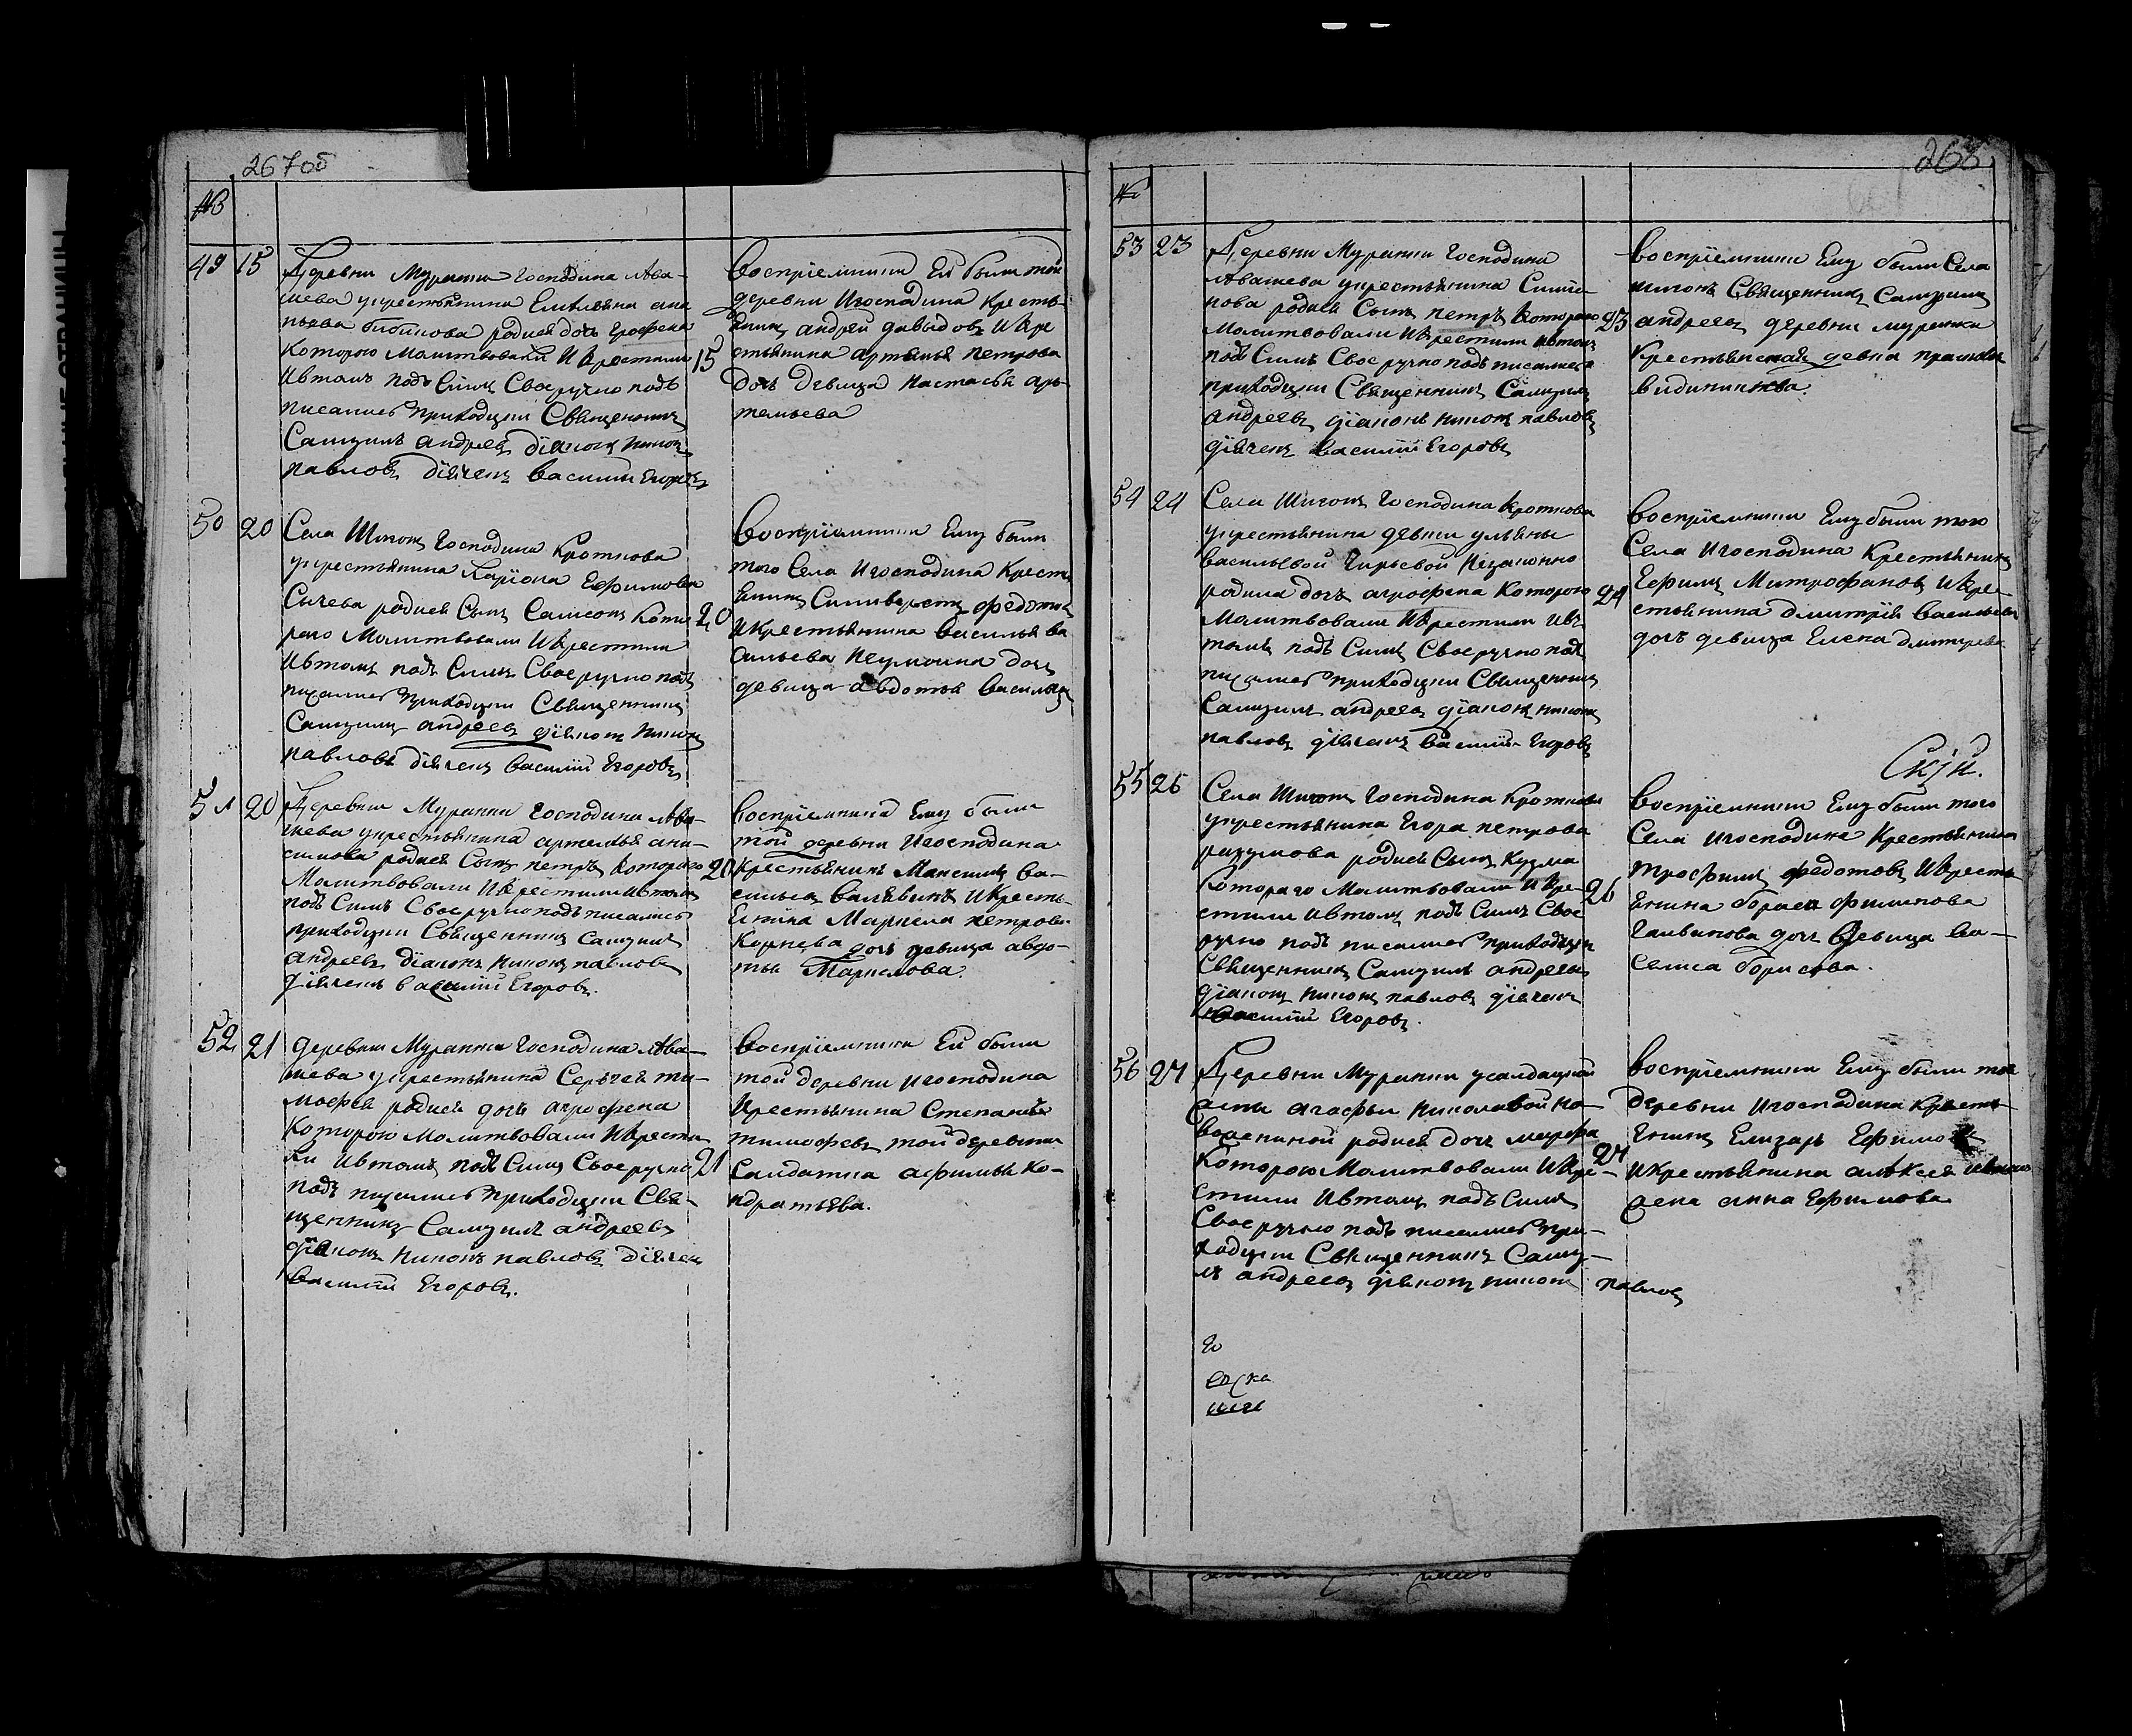 267об
№
49 15
Деревни Муранки Господина Ава-
шева укрестьянина Емельяна ана
ньева родися дочь
Которою Молитвовали ИКрестили 15
Ивтомъ подъ Симъ Своеручно подъ
писались Приходцкии Священникъ
Самуилъ андреевъ дїаконъ Никонъ
павловъ дїячекъ василии Егоровъ
восприемники Ей были той
деревни Игосподина Кресть
янинъ андрей давыдовъ ИКре
стьянина артемья петрова
дочь девица настасья арь
темьева
50 20
Села Шигонъ Господина Кроткова
укрестьянина Ларїона Ефимова
Сычева родися Сынъ Самсонъ Кото 20
раго Молитвовали ИКрестили
Ивтомъ подъ Симъ Своеручно подъ
писались Приходцкии Священникъ
Самуилъ андреевъ дїяконъ Никонъ
павловъ дїячекъ василии Егоровъ
восприемники Ему были
того Села Игосподина Кресть
янинъ Силиверстъ федотовъ
ИКрестьянина василья ва
сильева Неумоина дочь
девица авдотья васильева
51 20
Деревни Муранки Господина Ава-
шева укрестьянина артемья ани-
симова родися Сынъ петръ Котораго 20
Молитвовали ИКрестили Ивтомъ
подъ Симъ Своеручно подъ писались
приходцкии Священникъ Самуилъ
андреевъ дїаконъ Никонъ павловъ
дїячекъ василии Егоровъ.
восприемники Ему были
той деревни Игосподина
Крестьянинъ Максимъ ва-
сильевъ ИКресть-
Енина Маркела петрова
Корнева дочь девица авдо-
тья Маркелова.
52 21
деревни Муранки Господина Ава-
шева укрестьянина Сергея ти-
мофея родися дочь агрофена
Которою Молитвовали ИКрести
ли Ивтомъ подъ Симъ Своеручно 21
подъ писались Приходцкии Свя-
щенникъ Самуилъ андреевъ
дїяконъ Никонъ павловъ дїячекъ
василии Егоровъ.
восприемники Ей были
той деревни Игосподина
Крестьянина Степанъ
тимофеевъ той деревни
Салдатка афимья Ко-
ндратьева.
268
№
53 23
Деревни Муранки Господина
Авашева укрестьянина Симо-
нова родися Сынъ петръ Котораго 23
Молитвовали ИКрестили Ивтомъ
подъ Симъ Своеручно подъ писались
приходцкии Священникъ Самуилъ
андреевъ дїаконъ Никонъ павловъ
дїячекъ василии Егоровъ
восприемники Ему были Села
шигонъ Священникъ Самуилъ
андреевъ деревни муранки
Крестьянская девка прасковья
54 24
Села Шигонъ Господина Кроткова
укрестьянина девки ульяны
васильевой Гирьевой Незаконно
родила дочь агрофена Которою 24
Молитвовали ИКрестили Ивъ
томъ подъ Симъ Своеручно подъ
писались приходцкии Священникъ
Самуилъ андреевъ дїаконъ никонъ
павловъ дїячекъ василии Егоровъ
восприемники Ему были того
Села Игосподина Крестьянинъ
Ефимъ Митрофановъ ИКре-
стьянина дмитрїя васильева
дочь девица Елена дмитрева
55 26
Села Шигонъ Господина Кроткова
укрестьянина Егора петрова
разумова родися Сынъ Кузма
Котораго Молитвовали ИКре- 26
стили Ивтомъ подъ Симъ Свое
ручно подъ писались приходцкии
Священникъ Самуилъ андреевъ
дїаконъ никонъ павловъ дїячекъ
василии Егоровъ.
восприемники Ему были того
Села Игосподина Крестьянинъ
трофимъ федотовъ ИКресть
Енина бориса филипова
Галванова дочь девица ва-
селиса борисова.
56 27
Деревни Муранки усалдацкой
жены агафьи Николавой Ко-
родися дочь марфа
Которою Молитвовали ИКре- 27
стили Ивтомъ подъ Симъ
Своеручно подъ писались При-
ходцкии Священникъ Самуи-
лъ андреевъ дїяконъ никонъ павловъ
восприемники Ему были той
деревни Игосподина Кресть-
Енинъ Елизаръ Ефимовъ
ИКрестьянина алексея
жена анна Ефимова